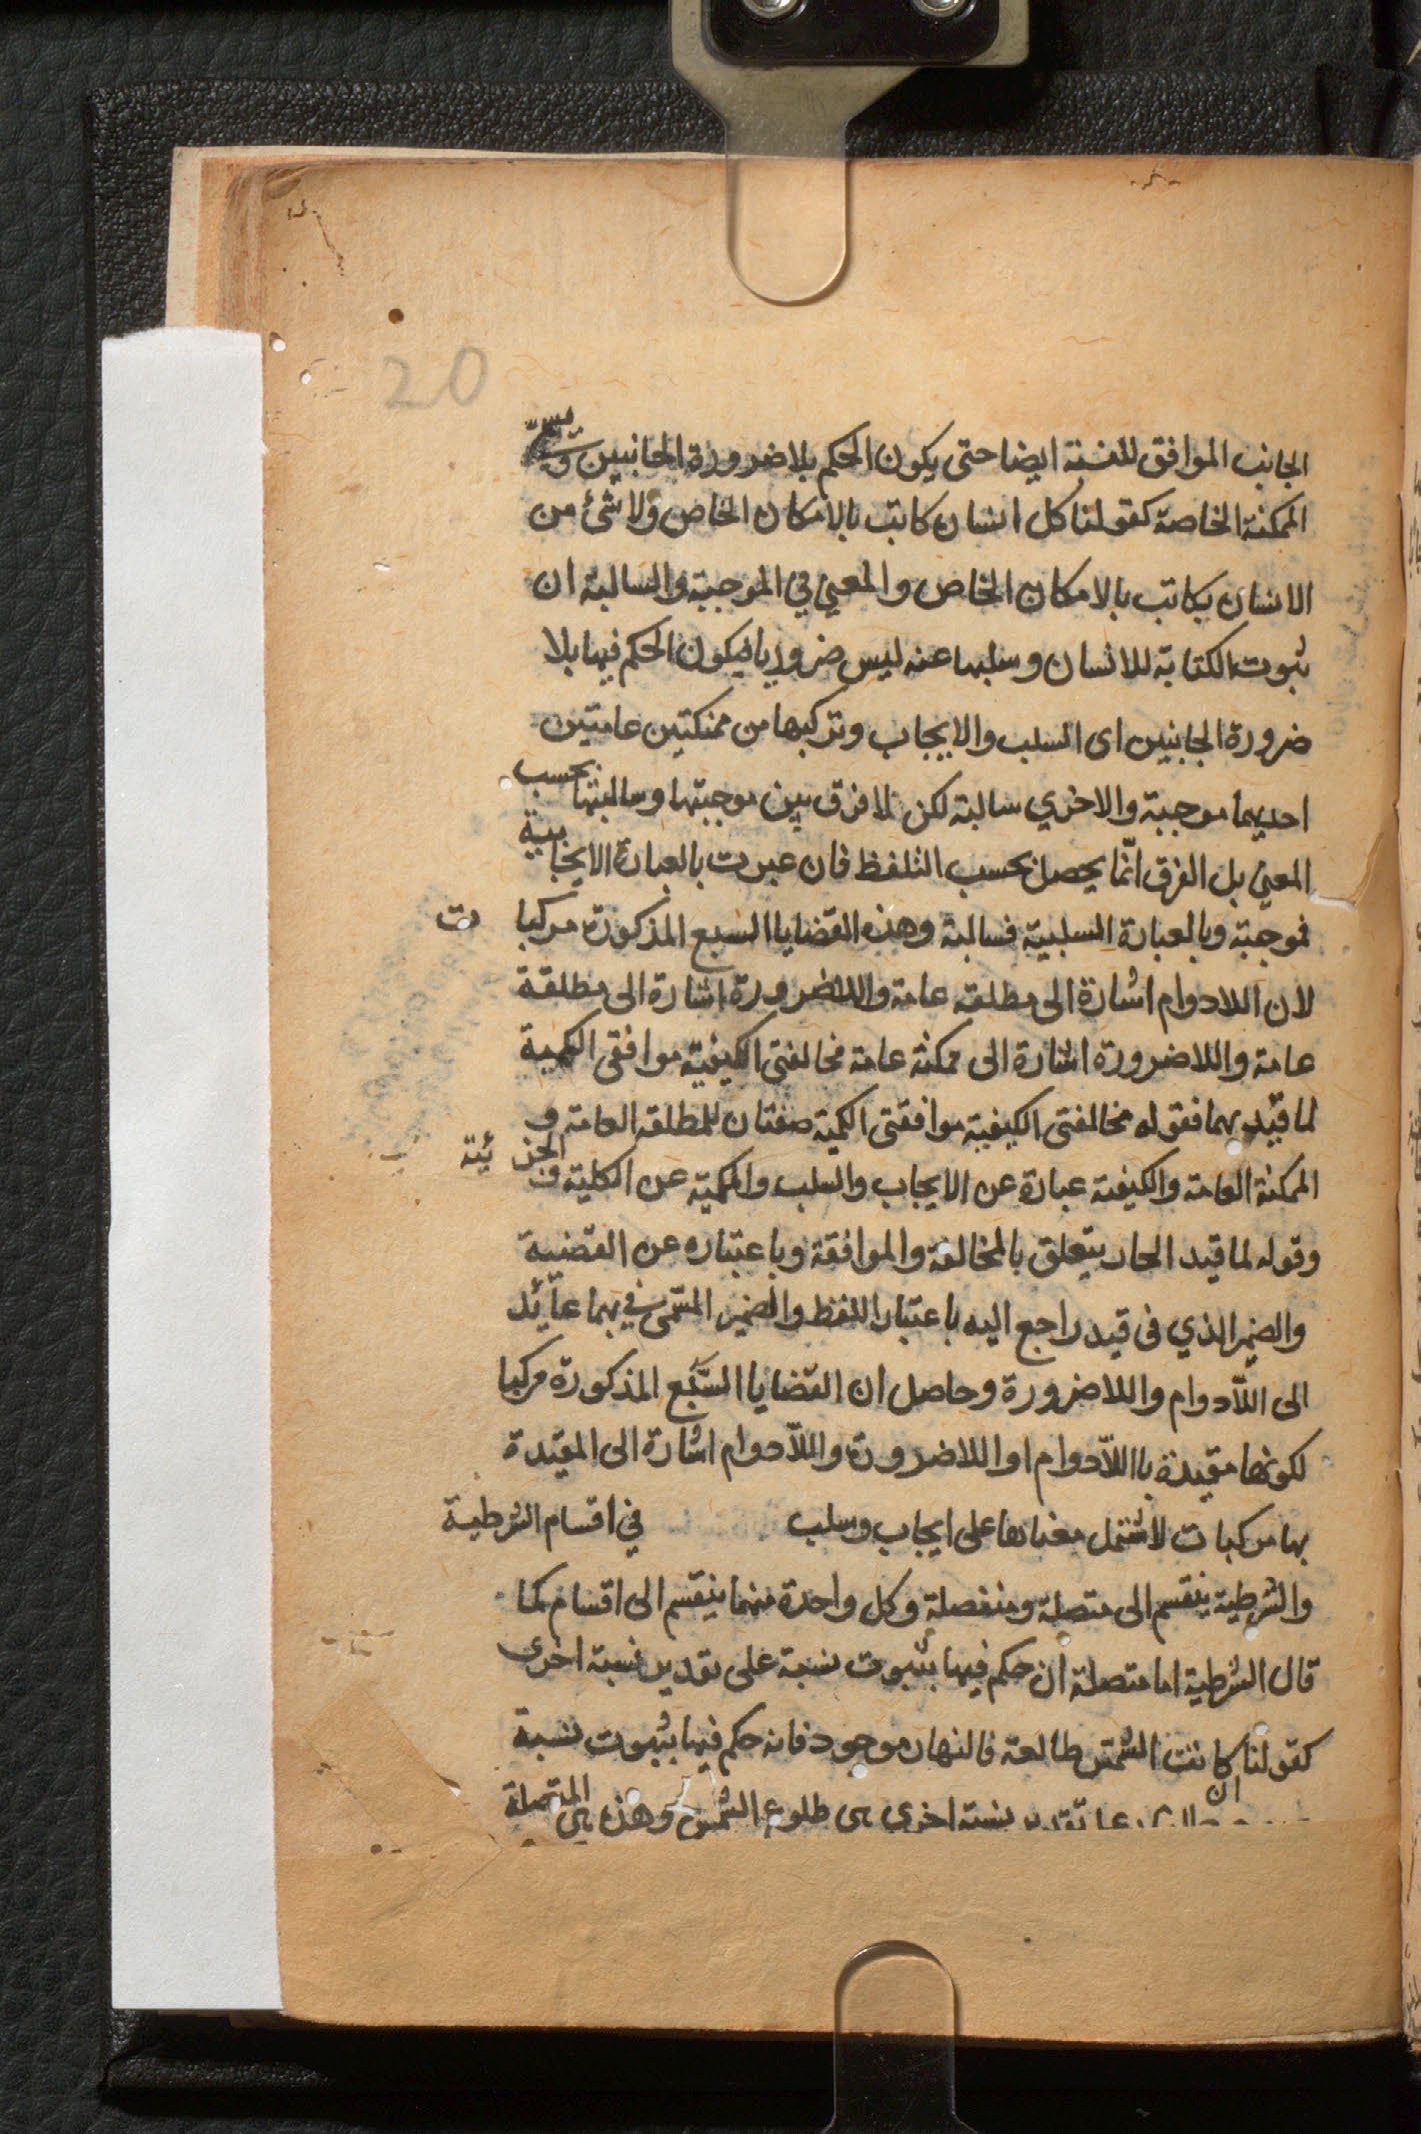 20
الجانب الموافق للنسبة ايضا حتى يكون الحكم بلا ضرورة الجانبين
الممكنة الخاصة كقولنا كل انسان كاتب بالامكان الخاص ولا شئ من
الانسان بكاتب بالامكان الخاص والمعني في الموجبة والسالبة ان
ثبوت الكتابة للانسان وسلبها عنه ليس ضروريا فيكون الحكم فيها بلا
ضرورة الجانبين اى السلب والايجاب وتركبها من ممكنتين عامتين
احديهما موجبة والاخري سالبة لكن لا فرق بين موجبتها وسالبتها بحسب
المعني بل الفرق انّما يحصل بحسب التلفظ فان عبرت بالعبارة الايجابية
فموجبة وبالعبارة السلبية فسالبة وهذه القضايا السبع المذكورة مركبا ت
لان اللادوام اشارة الى مطلقه عامة واللاضرورة اشارة الى مطلقة
عامة واللاضرورة اشارة الى ممكنة عامة مخالفتى الكيفية موافقى الكمية
لما قيّد بهما فقوله مخالفتى الكيفية موافقتى الكمية صفتان للمطلقه العامة و
الممكنة العامة والكيفية عبارة عن الايجاب والسلب والكمية عن الكلية و الجزئية
وقوله لما قيد الجار يتعلق بالمخالفة والموافقة وباعتباره عن القضية
والضمير الذي فى قيد راجع اليه باعتبار اللفظ والضمير المسّمى في بهما عائد
الى اللّادوام واللاضرورة وحاصل ان القضايا السّبع المذكورة مركبا
لكونها مقيدة بااللّادوام او اللاضرورة واللّادوام اشارة الى المقيدة
بها مركبات لاشتمل معناها على ايجاب وسلب في اقسام الشرطية
والشرطية ينقسم الى متصلة ومنفصلة وكل واحدة منهما ينقسم الى اقسام كما
قال الشرطية اما متصلة ان حكم فيها بثبوت نسبة على تقدير نسبة اخرى
كقولنا ان كانت الشمس طالعة فالنهار موجود فانه حكم فيها بثبوت نسبة
تقدير نسبة اخرى هى طلوع الشمس وهذه هى المتصلة